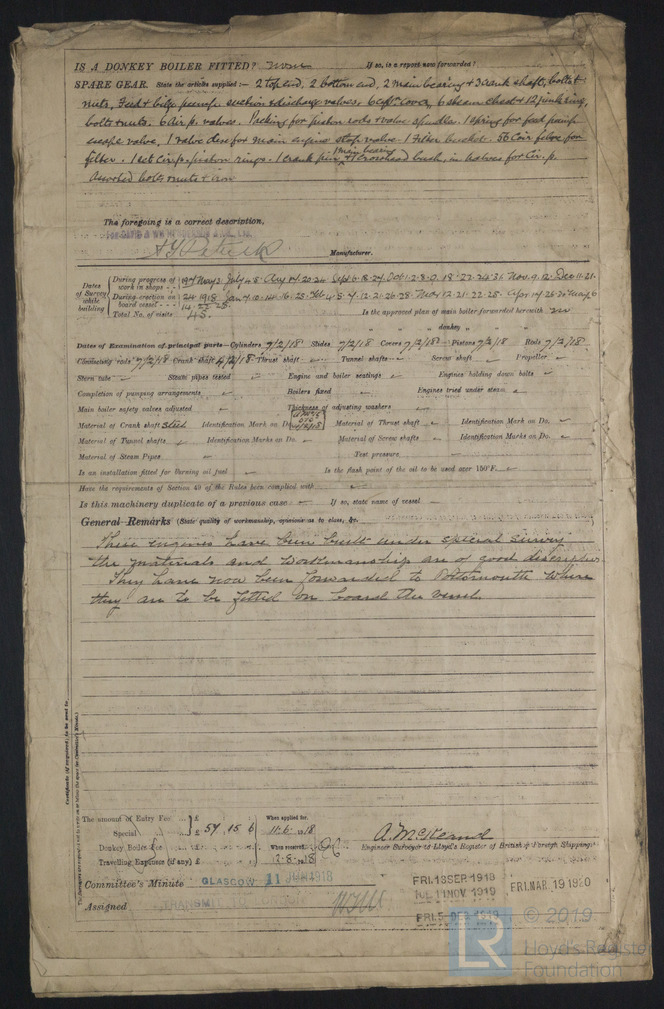 IS A DONKEY BOILER FITTED? If so, is a report now forwarded?
SPARE GEAR. State the articles supplied:— 2 top end, 2 bottom end, 2 main bearing + 3 crank shaft, bolts +
nuts, Feed + bilge pump suction + discharge valves. 6 steam chest + 12 junk ring,
bolts + nuts. 6 Air p. valves. Packing for piston rods + valve spindles. 1 spring for feed pump
escape valve, 1 valve disc for main engine stop valve. 1 Filter bucket. 56 Coir fibre for
filter. 1 set Cir. p. piston rings. 1 crank pin, + 1 main bearing + 1 crosshead bush, in halves for Cir. p.
Assorted bolts + nuts + iron
The foregoing is a correct description,
Manufacturer.
Dates of Survey while building
During progress of work in shops - - 1917 May 3. July 4.5. Aug 14.20.24. Sept 6.18.24. Oct 1.2.8.9.18.22.24.31. Nov. 9.12. Dec 11.21.
During erection on board vessel - - - 24. 1918 Jan 7.12.14.16.23. Feb 4.5.7.12.21.26.28. Mar 12.21.22.28. Apr
Total No. of visits 45. Is the approved plan of main boiler forwarded herewith no
" " " donkey " " "
Dates of Examination of principal parts—Cylinders 7/2/18 Slides 7/2/18 Covers 7/2/18 Pistons 7/2/18 Rods 7/2/18
Connecting rods 7/2/18 Crank shaft 4/2/18 Thrust shaft Tunnel shafts Screw shaft Propeller
Stern tube Steam pipes tested Engine and boiler seatings Engines holding down bolts
Completion of pumping arrangements Boilers fixed Engines tried under steam
Main boiler safety valves adjusted Thickness of adjusting washers
Material of Crank shaft Steel Identification Mark on Do. Material of Thrust shaft Identification Mark on Do.
Material of Tunnel shafts Identification Marks on Do. Material of Screw shafts Identification Marks on Do.
Material of Steam Pipes Test pressure
Is an installation fitted for burning oil fuel Is the flash point of the oil to be used over 150°F.
Have the requirements of Section 49 of the Rules been complied with
Is this machinery duplicate of a previous case If so, state name of vessel
General Remarks (State quality of workmanship, opinions as to class, &c.
These engines have been built under special survey
the materials and workmanship are of good description
They have now been forwarded to Portsmouth where
they are to be fitted on board the vessel.
The amount of Entry Fee ... £
Special ... £ 57 . 15 . 6
When applied for, 11.6.1918
Donkey Boiler Fee ... £
When received, 2.8.1918
Travelling Expenses (if any) £
A. McKeand
Engineer Surveyor to Lloyd's Register of British & Foreign Shipping.
Committee's Minute GLASGOW 11 JUN 1918
FRI. 13 SEP 1918
TUE. 11 NOV 1919
FRI. MAR 19 1920
Assigned TRANSMIT TO LONDON
FRI. 5 DEC 1919
LR © 2019
Lloyd's Register
Foundation